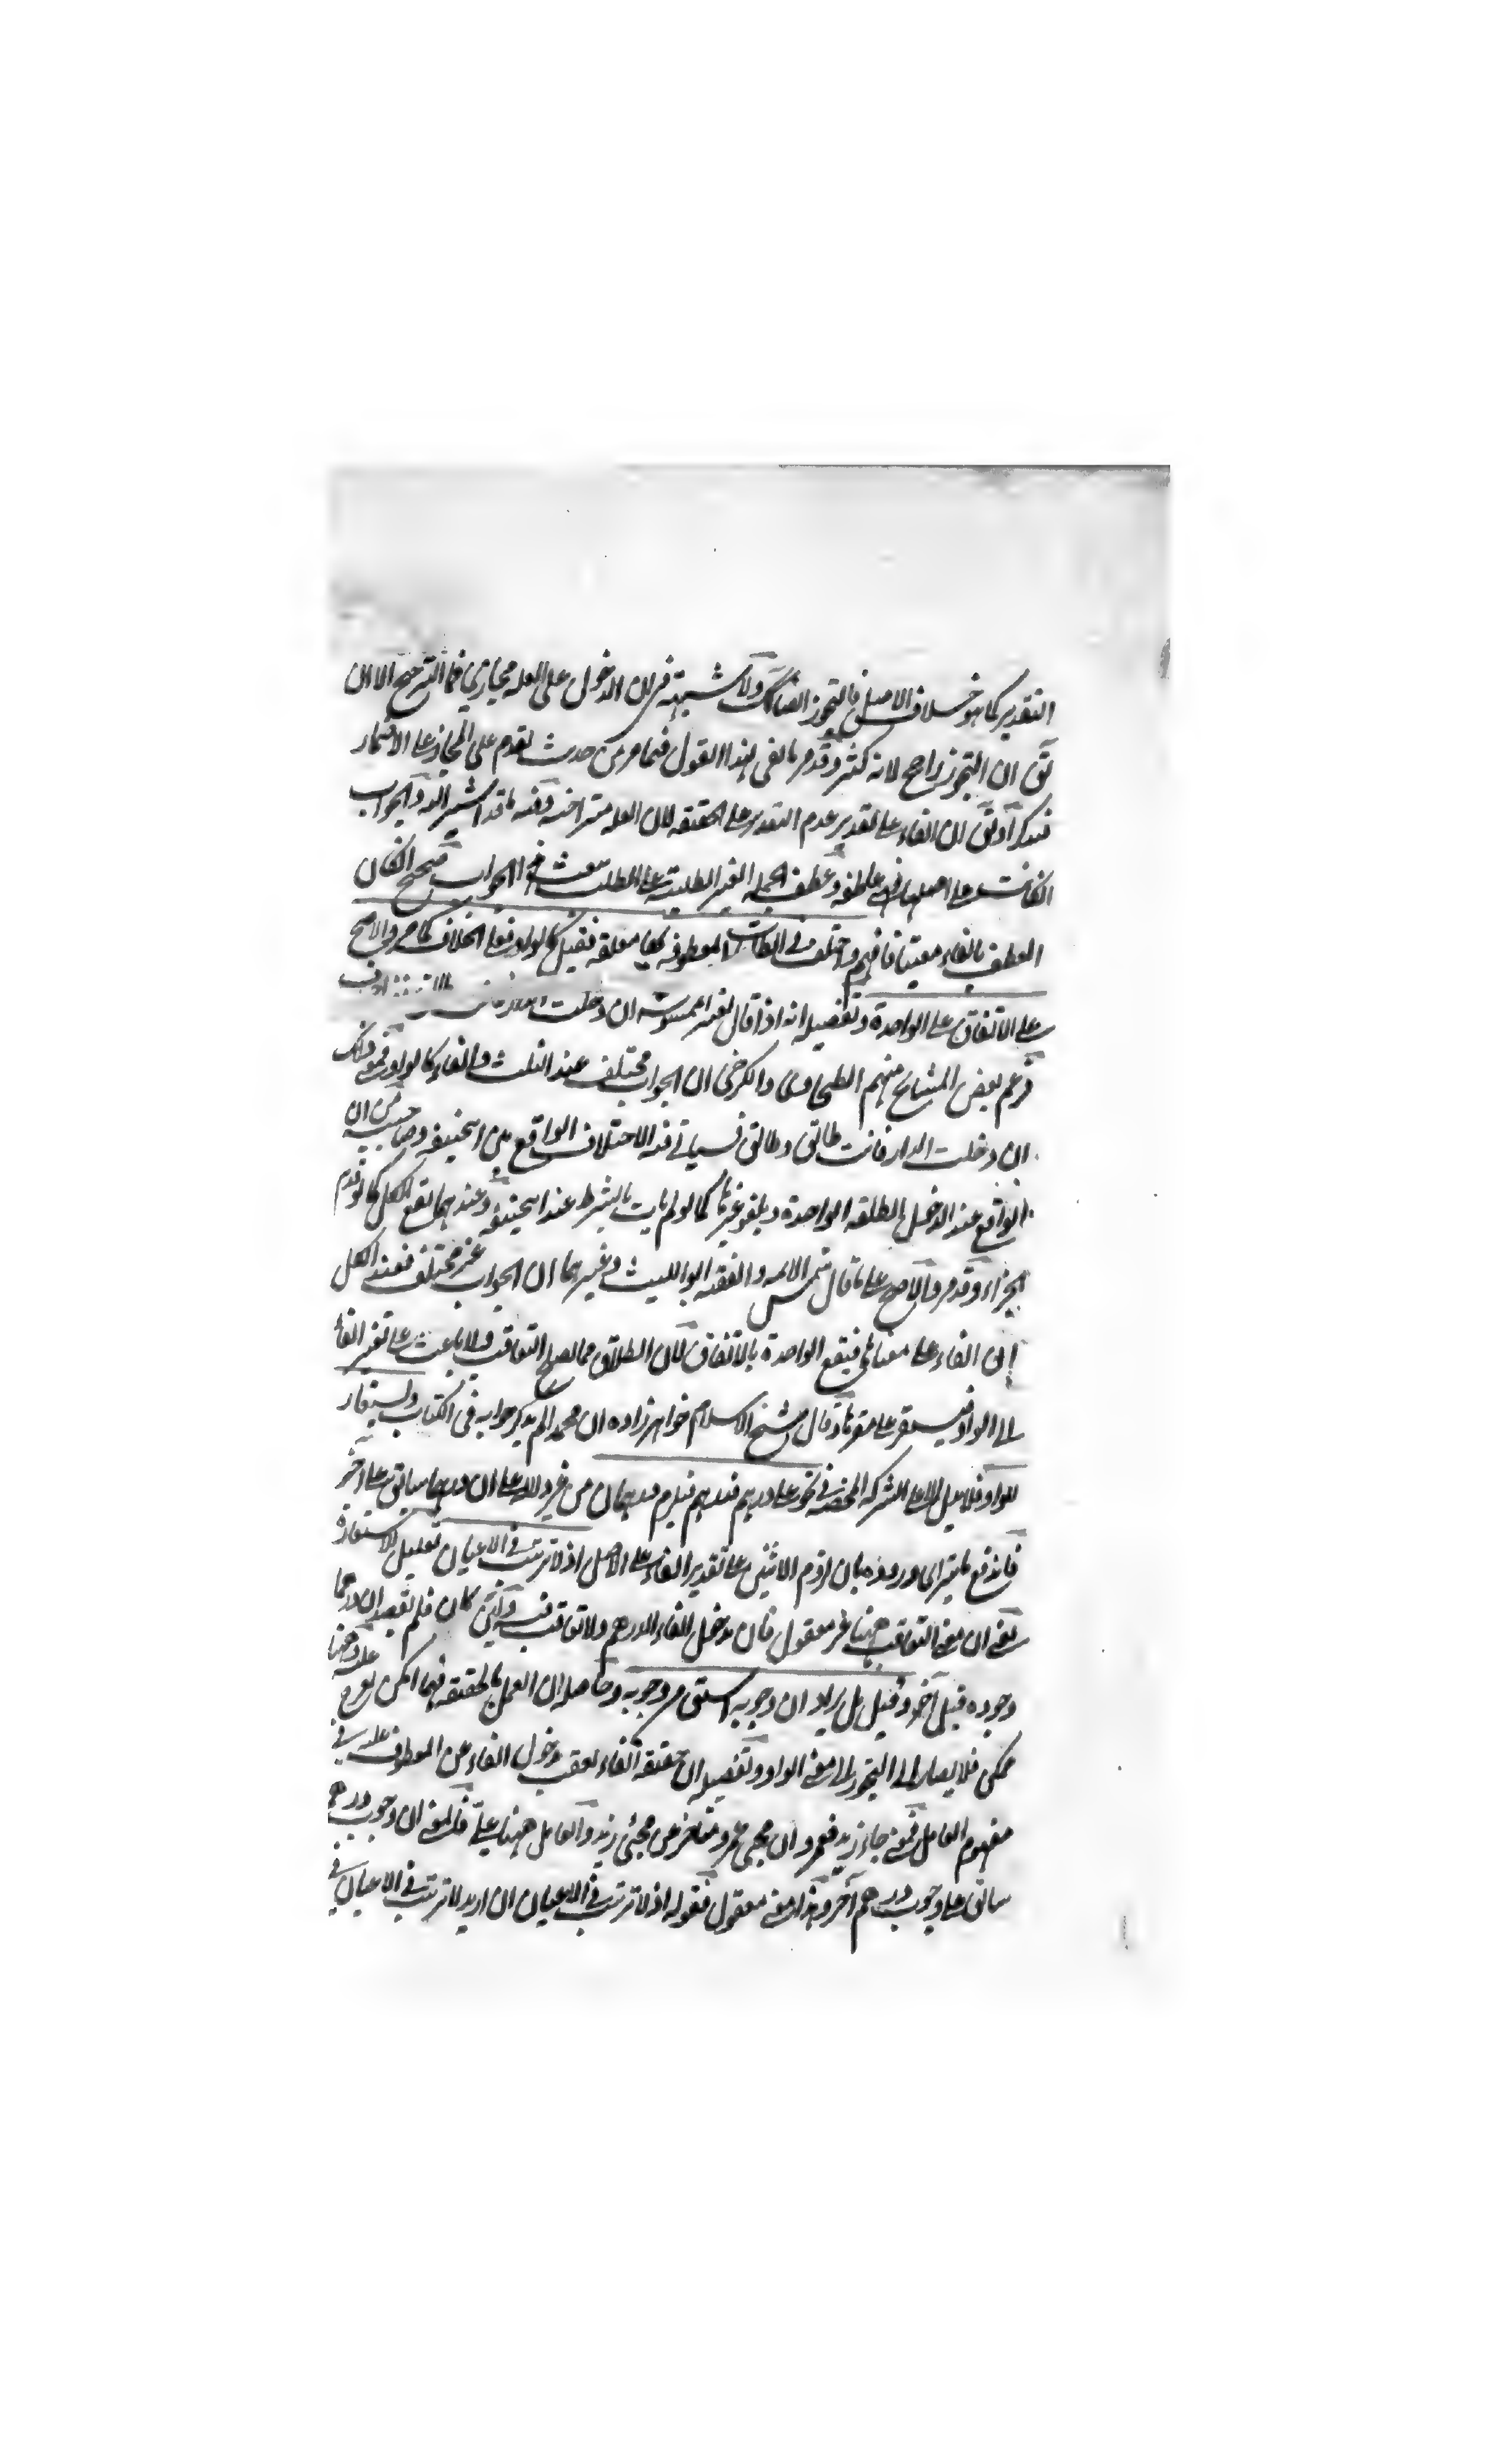 التقدير كما هو خلاف الاصل فالتجوز ايضا كك ولا شبهة في ان الدخول على العله مجازي فما الترجيح الا ان
يق ان التجوز راجح لانه كثر وقد مر ما نفى هذا القول فيما مر من حديث تقدم على المجاز على الاضمار
فتذكر او يق ان الفاء على تقدير عدم التقدير على الحقيقه لان العله متراخيه وفيه ما قد اشير اليه والجواب
ان كانت على اصلها فهي عاطفه وعطف الجمله الغير الطلبية على الطلب في الجواب صحيح اذا كان
العطف بالفاء معيتا فافهم واختلف في الطلقات المعطوفه بها معلقه فقيل كالواو فعلى الخلاف كما مر والاصح
على الاتفاق على الواحدة وتفصيله انه اذا قال لغير الممسوسه ان دخلت
فزعم بعض المشايخ منهم الطحاوي والكرخي ان الجواب مختلف عند الثلث والفاء كالواو فهو ذلك
ان دخلت الدار فانت طالق وطالق فسياتي فيه الاختلاف الواقع بين ابيحنيفه وصاحبيه من ان
الواقع عند الدخول الطلقه الواحدة ويلغو غيرها كما لو لم يات بالشرط عند ابيحنيفه وعندهما تقع الكل كما لو قدم
الجزاء وقد مر والاصح على ما قال شمس الائمه والفقيه ابو الليث وغيرهما ان الجواب غير مختلف فعند الكل
ان الفاء على معناها فيقع الواحدة بالاتفاق لان الطلاق مما يصلح التعاقب ولا باعث على تغير الفاء
الى الواو فيستقر على مقرها وقال شيخ الاسلام خواهر زاده ان محمدا لم يذكر جوابه في الكتاب ويستعار
للواو فلا يدل الا على الشركه المحضه في نحو على درهم فدرهم فيلزم درهمان من غير دلاله على ان درهما سابق على آخر
فاندفع ما يترااى وروده بان لزوم الاثنين على تقدير الفاء على الاصل اذ لا ترتب في الاعيان تعليل للاستعارة
يعنى ان معنى التعاقب ههنا غير معقول فان مدخول الفاء الدرهم ولا تعاقب فيه ولئن كان فلم يقصد ان درهما
وجوده قبل آخر وقيل بل يراد ان وجوبه اسبق من وجوبه وحاصله ان العمل بالحقيقه مهما امكن لم يعدل عنه وههنا
ممكن فلا يصار الى التجوز الى معنى الواو وتفصيله ان حقيقه الفاء تعقب دخول الفاء عن المعطوف عليه في
مفهوم العامل فمعنى جاء زيد فعمرو ان مجيء عمرو متاخر عن مجيء زيد والعامل ههنا على فالمعنى ان وجوب درهم
سابق على وجوب درهم آخر وهذا معنى معقول فقوله اذ لا ترتب في الاعيان ان اريد لا ترتب في الاعيان في